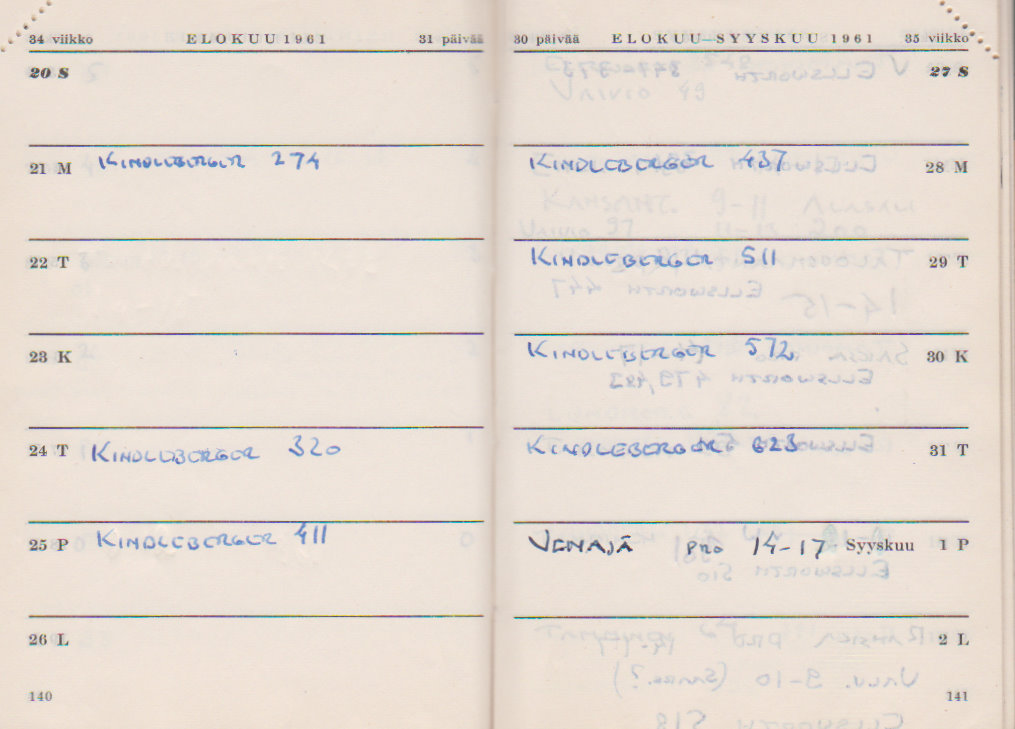 34 viikko ELOKUU 1961 31 päivää
20 S
21 M KINDLEBERGER 274
22 T
23 K
24 T KINDLEBERGER 320
25 P KINDLEBERGER 411
26 L
140
30 päivää ELOKUU—SYYSKUU 1961 35 viikko
27 S
KINDLEBERGER 437 28 M
KINDLEBERGER 511 29 T
KINDLEBERGER 572 30 K
KINDLEBERGER 623 31 T
VENÄJÄ PRO 14-17 Syyskuu 1 P
2 L
141